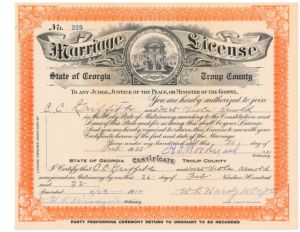 No. 329
Marriage License
State of Georgia Troup County
TO ANY JUDGE, JUSTICE OF THE PEACE, OR MINISTER OF THE GOSPEL.
You are hereby authorized to join
C. C. Griffith and Arnold
in the Holy State of Matrimony according to the Constitution and
Laws of this State and for so doing this shall be your License.
And you are hereby required to return this License to me with your
Certificate hereon of the fact and date of the Marriage.
Given under my hand and seal this 26 day of
STATE OF GEORGIA Certificate TROUP COUNTY
I Certify that C. C. Griffith and Arnold
were joined in Matrimony by me this 26 day of Nineteen Hundred
and 22
Recorded
PARTY PERFORMING CEREMONY RETURN TO ORDINARY TO BE RECORDED